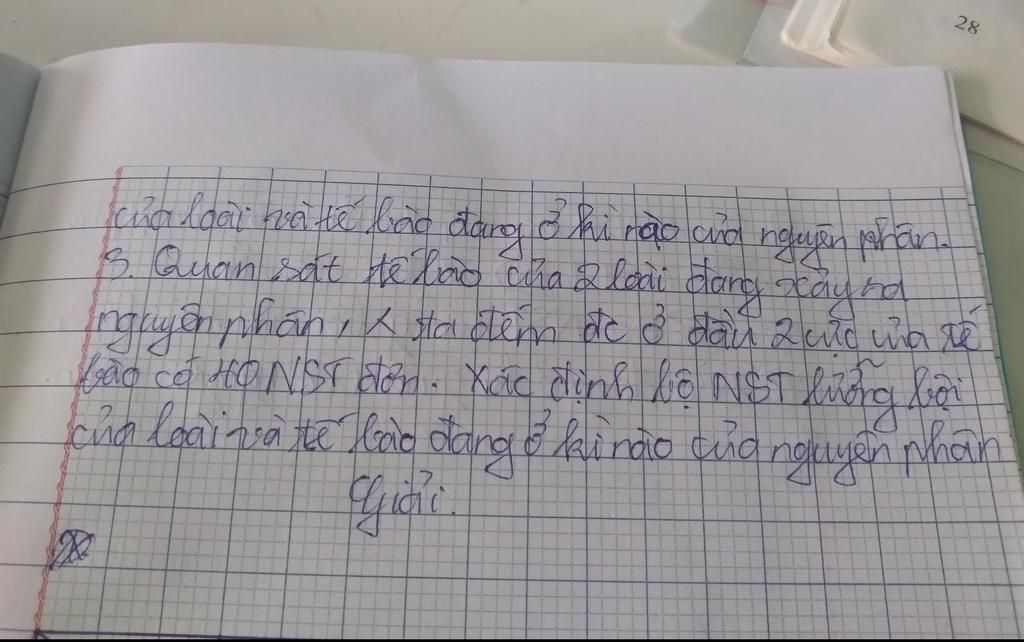 28
của loài và tế bào đang ở kì nào của nguyên phân.
3. Quan sát tế bào của 2 loài đang xảy ra
nguyên phân, ta đếm đc ở đầu 2 cực của tế
bào có 40 NST đơn. Xác định bộ NST lưỡng bội
của loài và tế bào đang ở kì nào của nguyên phân
Giải.